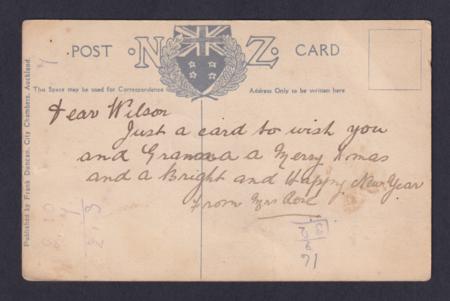 POST N Z CARD
This Space may be used for Correspondence
Address Only to be written here
Dear Wilson
Just a card to wish you
and Granma a Merry Xmas
and a Bright and Happy New Year
From Mrs
Published by Frank Duncan, City Chambers, Auckland.